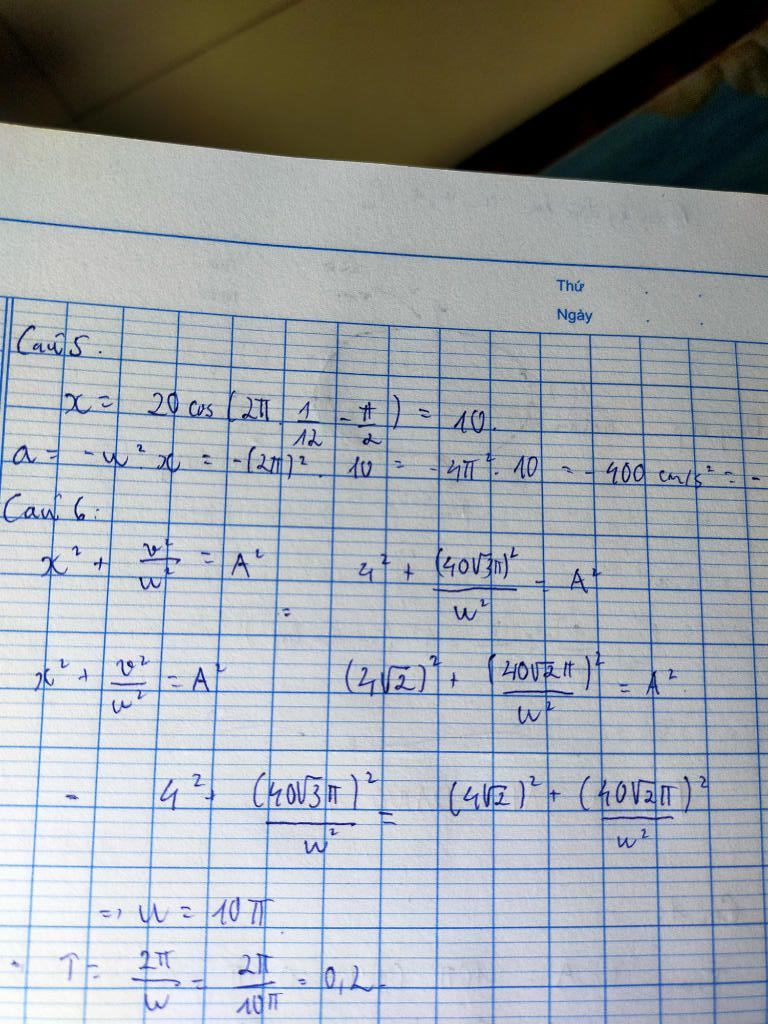 Thứ
Ngày
Câu 5.
x = 20 cos (2π . 1/12 - π/2) = 10.
a = -w². x = -(2π)². 10 = -4π². 10 = -400 cm/s² = -
Câu 6:
x² + v²/w² = A² 4² + (40√3π)²/w² = A²
=
x² + v²/w² = A² (4√2)² + (40√2π)²/w² = A².
- 4² + (40√3π)²/w² = (4√2)² + (40√2π)²/w²
=> w = 10π.
T = 2π/w = 2π/10π = 0,2